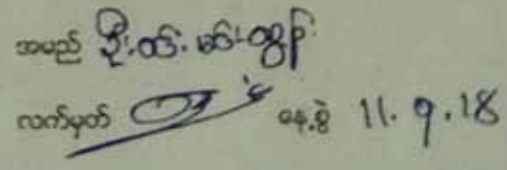 အမည် ဦးဝင်းမင်းထွန်း
လက်မှတ် နေ့စွဲ 11.9.18